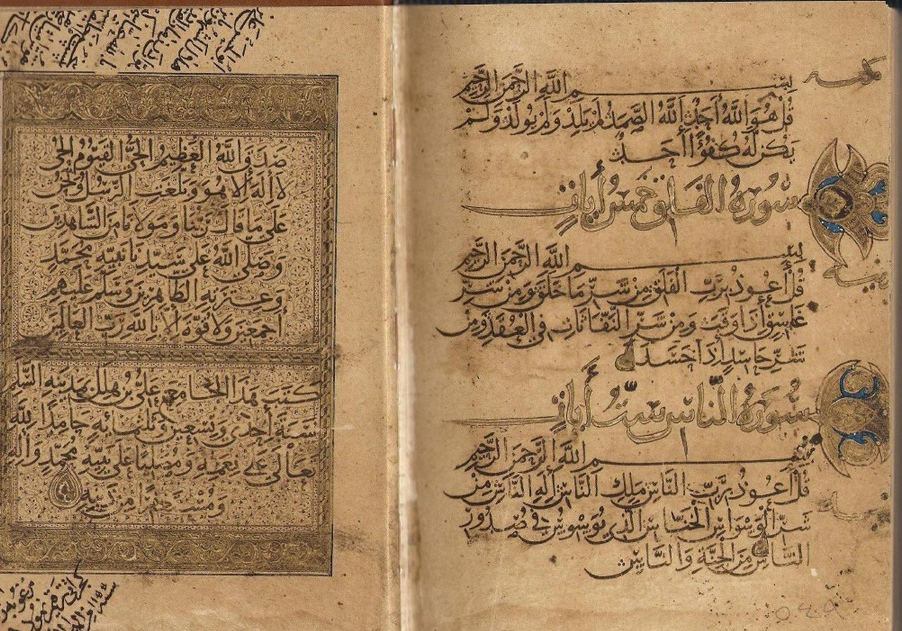 بسم الله الرحمن الرحيم
قل هو الله احد الله الصمد لم يلد ولم يولد ولم
يكن له كفوا احد
سورة الفلق خمس آيات
بسم الله الرحمن الرحيم
قل أعوذ برب الفلق من شر ما خلق ومن شر
غاسق إذا وقب ومن شر النفاثات في العقد ومن
شر حاسد إذا حسد
سورة الناس ست آيات
بسم الله الرحمن الرحيم
قل أعوذ برب الناس ملك الناس إله الناس من
شر الوسواس الخناس الذي يوسوس في صدور
الناس من الجنة والناس
صدق الله العظيم الحي القيوم الحي
لا اله الا هو وبلغت الرسل ونحن
على ما قال ربنا ومولانا من الشاهدين
وصلى الله على سيدنا نبيه محمد
وعترته الطاهرين وسلم عليهم
أجمعين ولا قوة إلا بالله رب العالمين
كتب هذا الجامع علي بن هلال بمدينة السلم
سنة أحدى وتسعين وثلثمائة حامدا لله
تعالى على نعمه ومصليا على نبيه محمد وآله
ومستغفرا من ذنبه